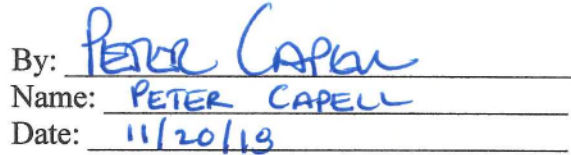 By: Peter Capell
Name: PETER CAPELL
Date: 11/20/19